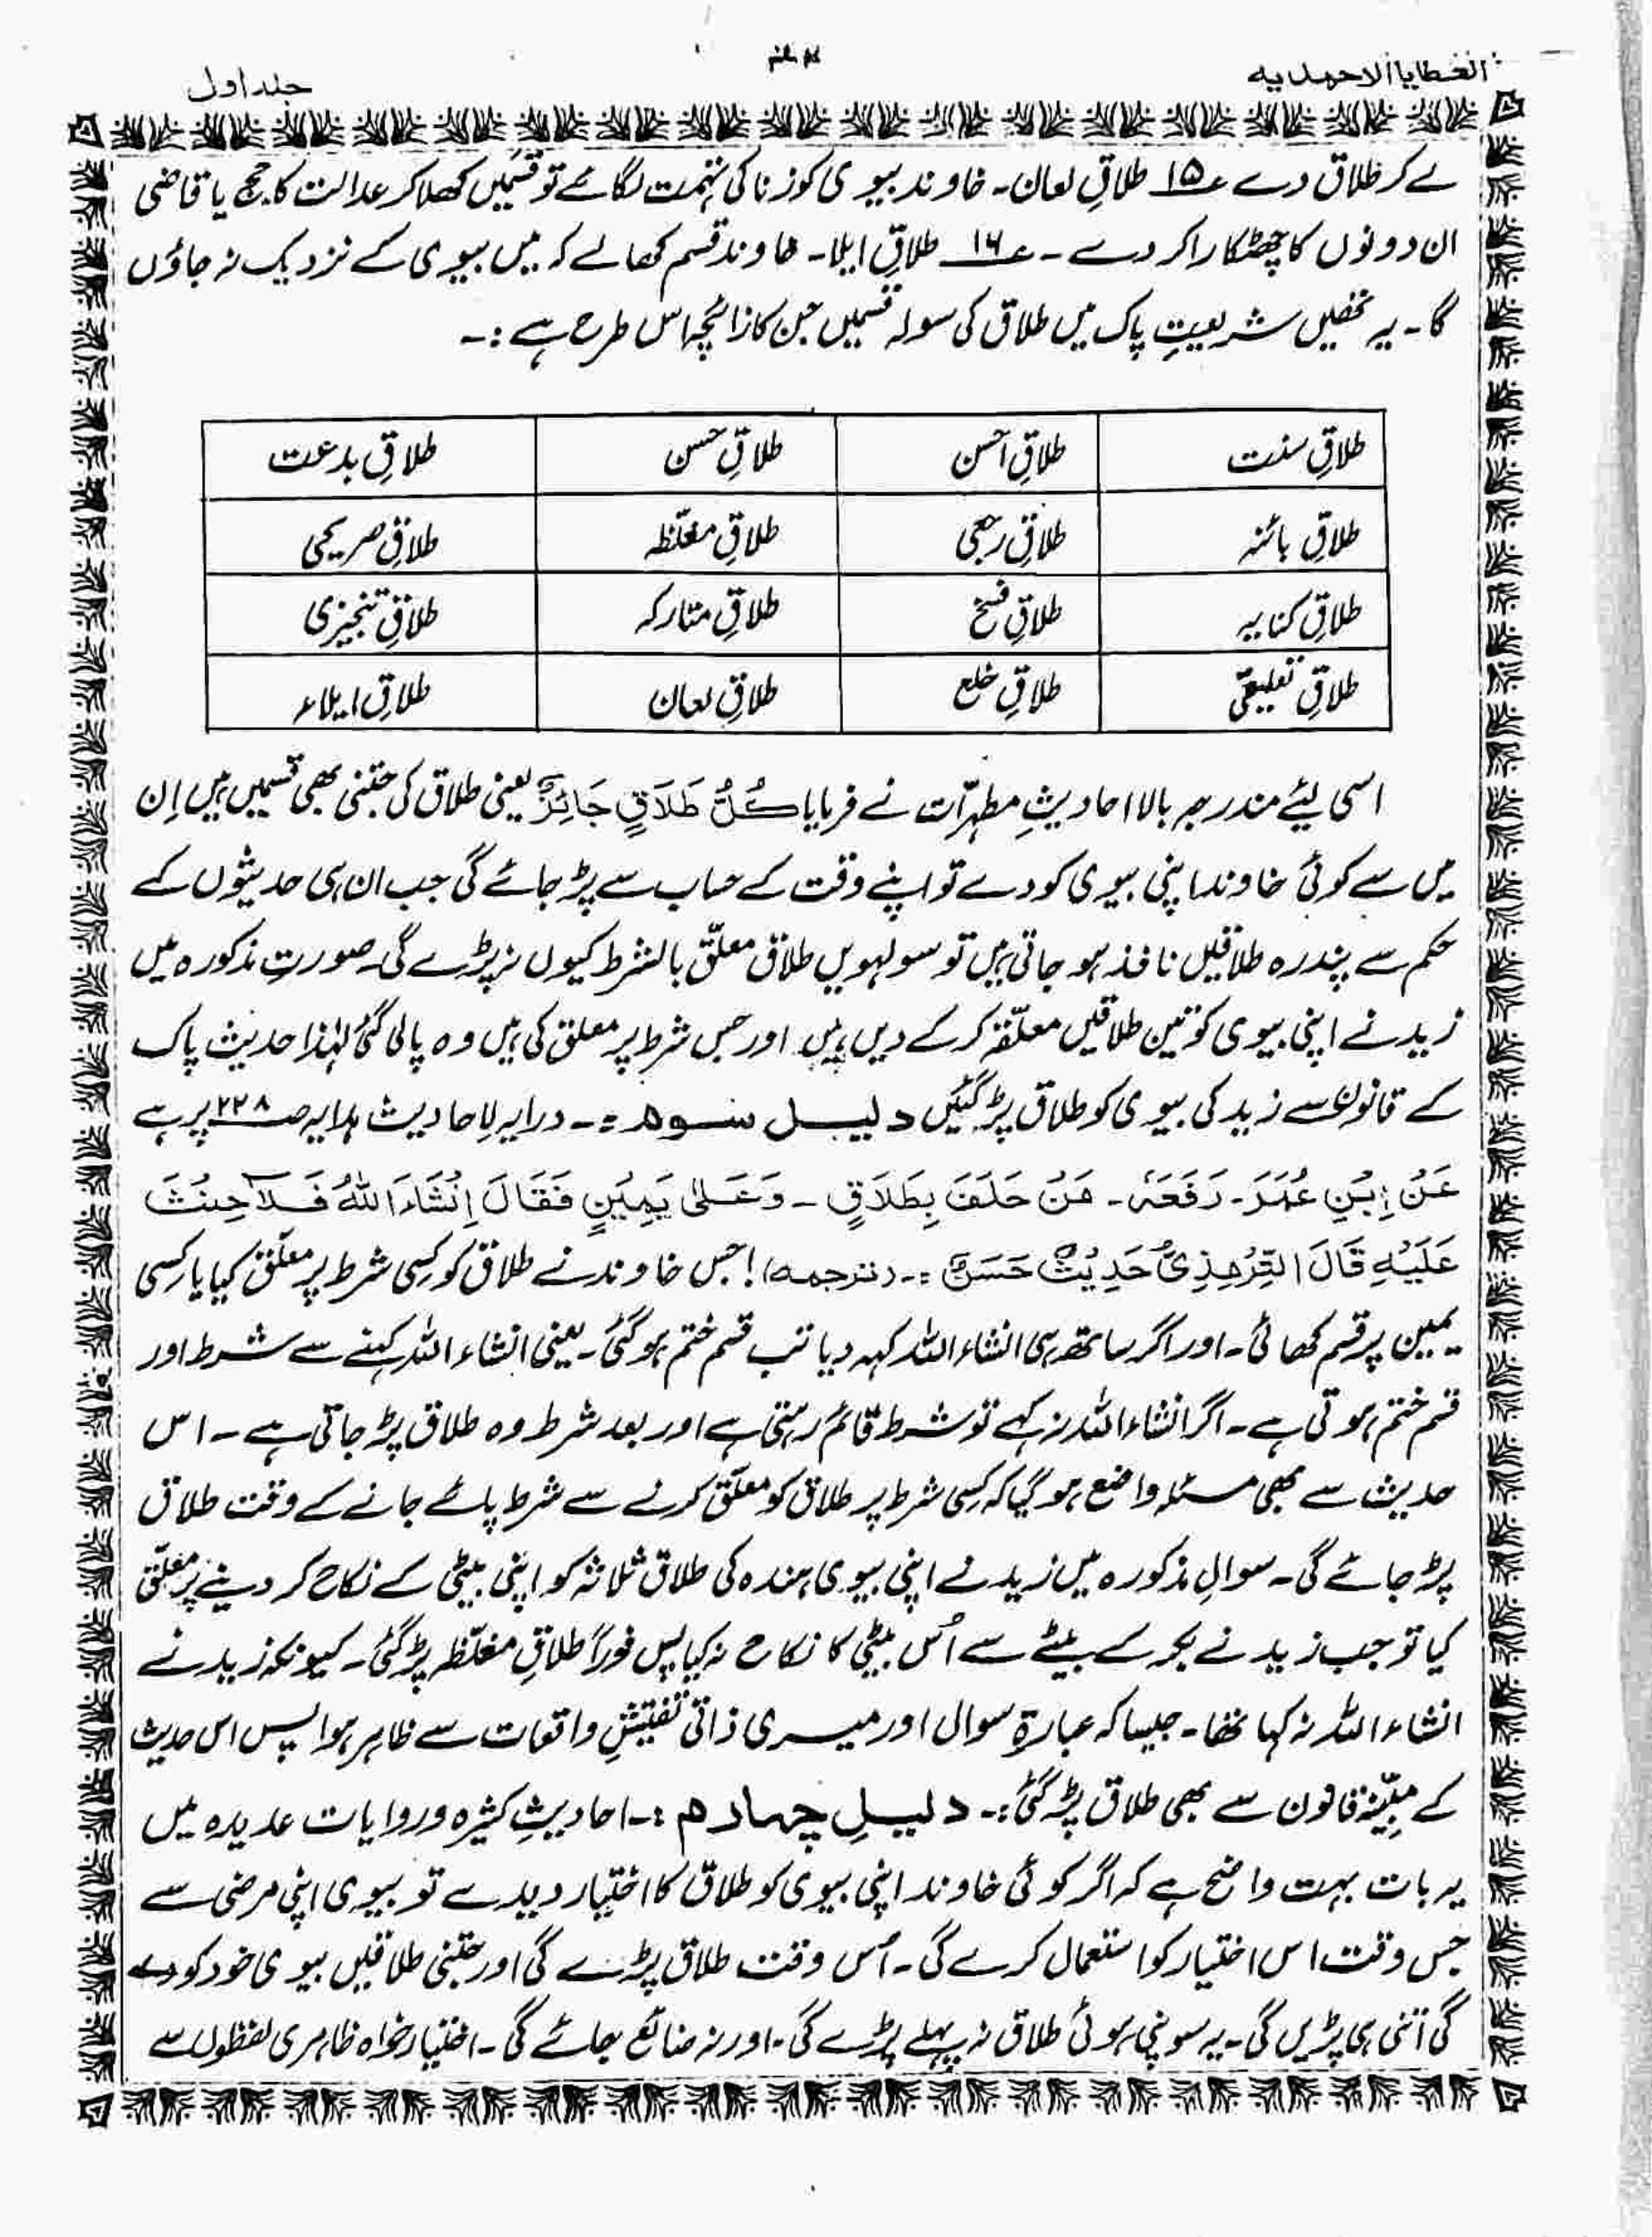 العطایا الاحمدیہ
جلد اول
لے کر طلاق دے ع۱۵ طلاقِ لعان۔ خاوند بیوی کو زنا کی تہمت لگائے تو قسمیں کھلا کر عدالت کا جج یا قاضی
ان دونوں کا چھٹکارا کر دے۔ ع۱۶ طلاقِ ایلا۔ خاوند قسم کھا لے کہ میں بیوی کے نزدیک نہ جاؤں
گا۔ یہ تھیں شریعتِ پاک میں طلاق کی سولہ قسمیں جن کا زائچہ اس طرح ہے :۔
طلاقِ سنت طلاقِ احسن طلاقِ حسن طلاقِ بدعت
طلاقِ بائنہ طلاقِ رجعی طلاقِ مغلّظہ طلاقِ صریحی
طلاقِ کنایہ طلاقِ فسخ طلاقِ متارکہ طلاقِ تنجیزی
طلاقِ تعلیقی طلاقِ خلع طلاقِ لعان طلاقِ ایلاء
اسی لیئے مندرجہ بالا احادیثِ مطہرّات نے فرمایا کُلُّ طَلَاقٍ جَائِزٌ یعنی طلاق کی جتنی بھی قسمیں ہیں اِن
میں سے کوئی خاوند اپنی بیوی کو دے تو اپنے وقت کے حساب سے پڑ جائے گی جب ان ہی حدیثوں کے
حکم سے پندرہ طلاقیں نافذ ہو جاتی ہیں تو سولہویں طلاق معلّق بالشرط کیوں نہ پڑے گی۔ صورتِ مذکورہ میں
زید نے اپنی بیوی کو تین طلاقیں معلّقہ کر کے دیں ہیں اور جس شرط پر معلق کی ہیں وہ پالی گئی لہٰذا حدیث پاک
کے قانون سے زید کی بیوی کو طلاق پڑ گئیں دلیل سوم :۔ درایہ لاحادیث ہدایہ صـ۲۲۸ پر ہے
عَنْ اِبْنِ عُمَرَ۔ رَفَعَہٗ۔ مَنْ حَلَفَ بِطَلَاقٍ ۔ وَعَلیٰ یَمِیْنٍ فَقَالَ اِنْشَاءَ اللّٰہُ فَلَا حِنْثَ
عَلَیْہِ قَالَ التِّرْمِذِیُّ حَدِیْثٌ حَسَنٌ :۔ (ترجمہ)! جس خاوند نے طلاق کو کسی شرط پر معلّق کیا یا کِسی
یمین پر قسم کھائی۔ اور اگر ساتھ ہی انشاء اللہ کہہ دیا تب قسم ختم ہو گئی۔ یعنی انشاء اللہ کہنے سے شرط اور
قسم ختم ہوتی ہے۔ اگر انشاء اللہ نہ کہے تو شرط قائم رہتی ہے اور بعد شرط وہ طلاق پڑ جاتی ہے۔ اس
حدیث سے بھی مسئلہ واضع ہو گیا کہ کِسی شرط پر طلاق کو معلّق کرنے سے شرط پائے جانے کے وقت طلاق
پڑ جائے گی۔ سوالِ مذکورہ میں زید نے اپنی بیوی ہندہ کی طلاق ثلاثہ کو اپنی بیٹی کے نکاح کر دینے پر معلّق
کیا تو جب زید نے بکر کے بیٹے سے اُس بیٹی کا نکاح نہ کیا پس فوراً طلاقِ مغلّظہ پڑ گئی۔ کیونکہ زید نے
انشاء اللہ نہ کہا تھا۔ جیسا کہ عبارۃِ سوال اور میری ذاتی تفتیشِ واقعات سے ظاہر ہوا پس اس حدیث
کے مبیّنہ قانون سے بھی طلاق پڑ گئی:۔ دلیلِ چہارم :۔ احادیثِ کثیرہ و روایات عدیدہ میں
یہ بات بہت واضح ہے کہ اگر کوئی خاوند اپنی بیوی کو طلاق کا اختیار دیدے تو بیوی اپنی مرضی سے
جس وقت اس اختیار کو استعمال کرے گی۔ اُس وقت طلاق پڑے گی اور جتنی طلاقیں بیوی خود کو دے
گی اتنی ہی پڑیں گی۔ یہ سونپی ہوئی طلاق نہ پہلے پڑے گی۔ اور نہ ضائع جائے گی۔ اختیار خواہ ظاہری لفظوں سے